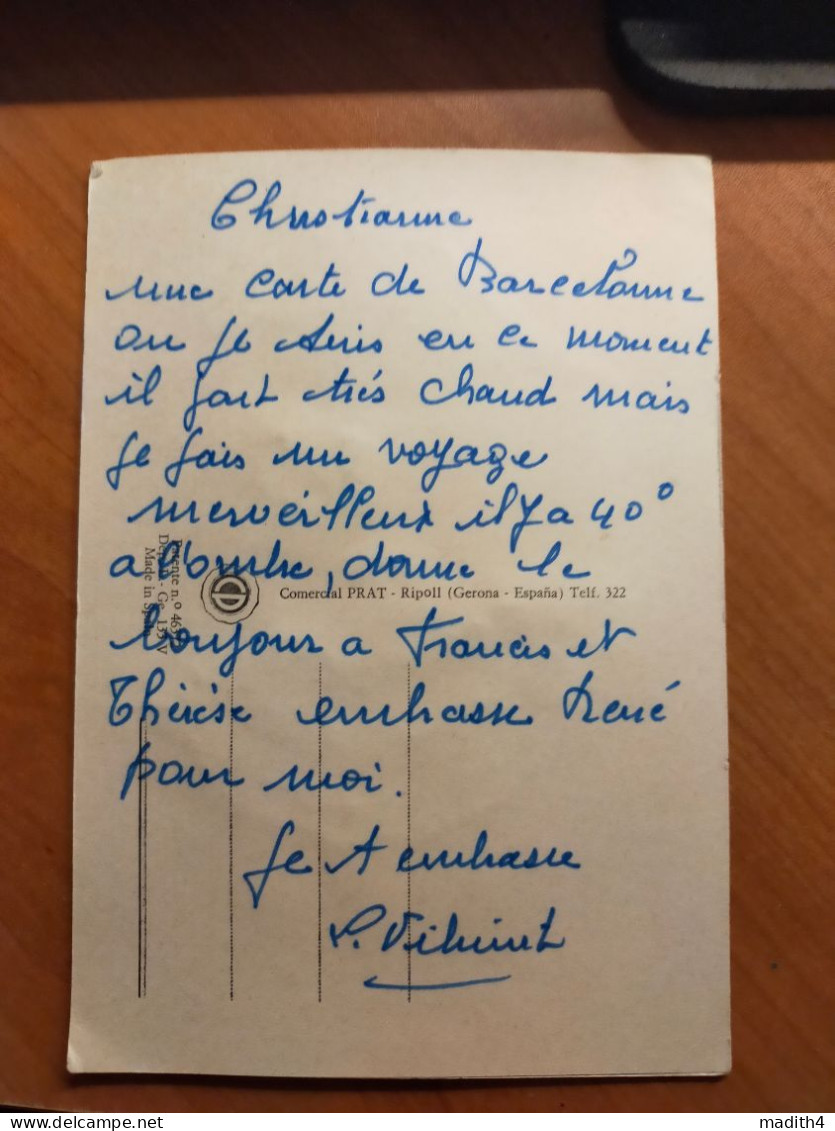 Christianne
une carte de Barcelonne
ou je suis en ce moment
il fait très chaud mais
je fais un voyage
merveilleux il y a 40°
a l'ombre, donne le
bonjour a Francis et
Thérèse embrasse René
pour moi.
Je t embrasse
Comercial PRAT - Ripoll (Gerona - España) Telf. 322
Made in Spain
delcampe.net
madith4